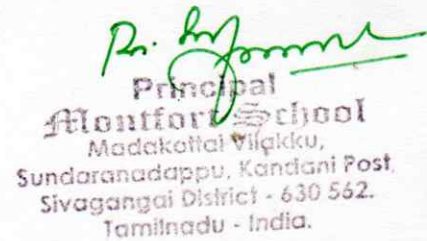 Principal
Montfort School
Madakottai Vilakku,
Sundaranadappu, Kandani Post,
Sivagangai District - 630 562.
Tamilnadu - India.